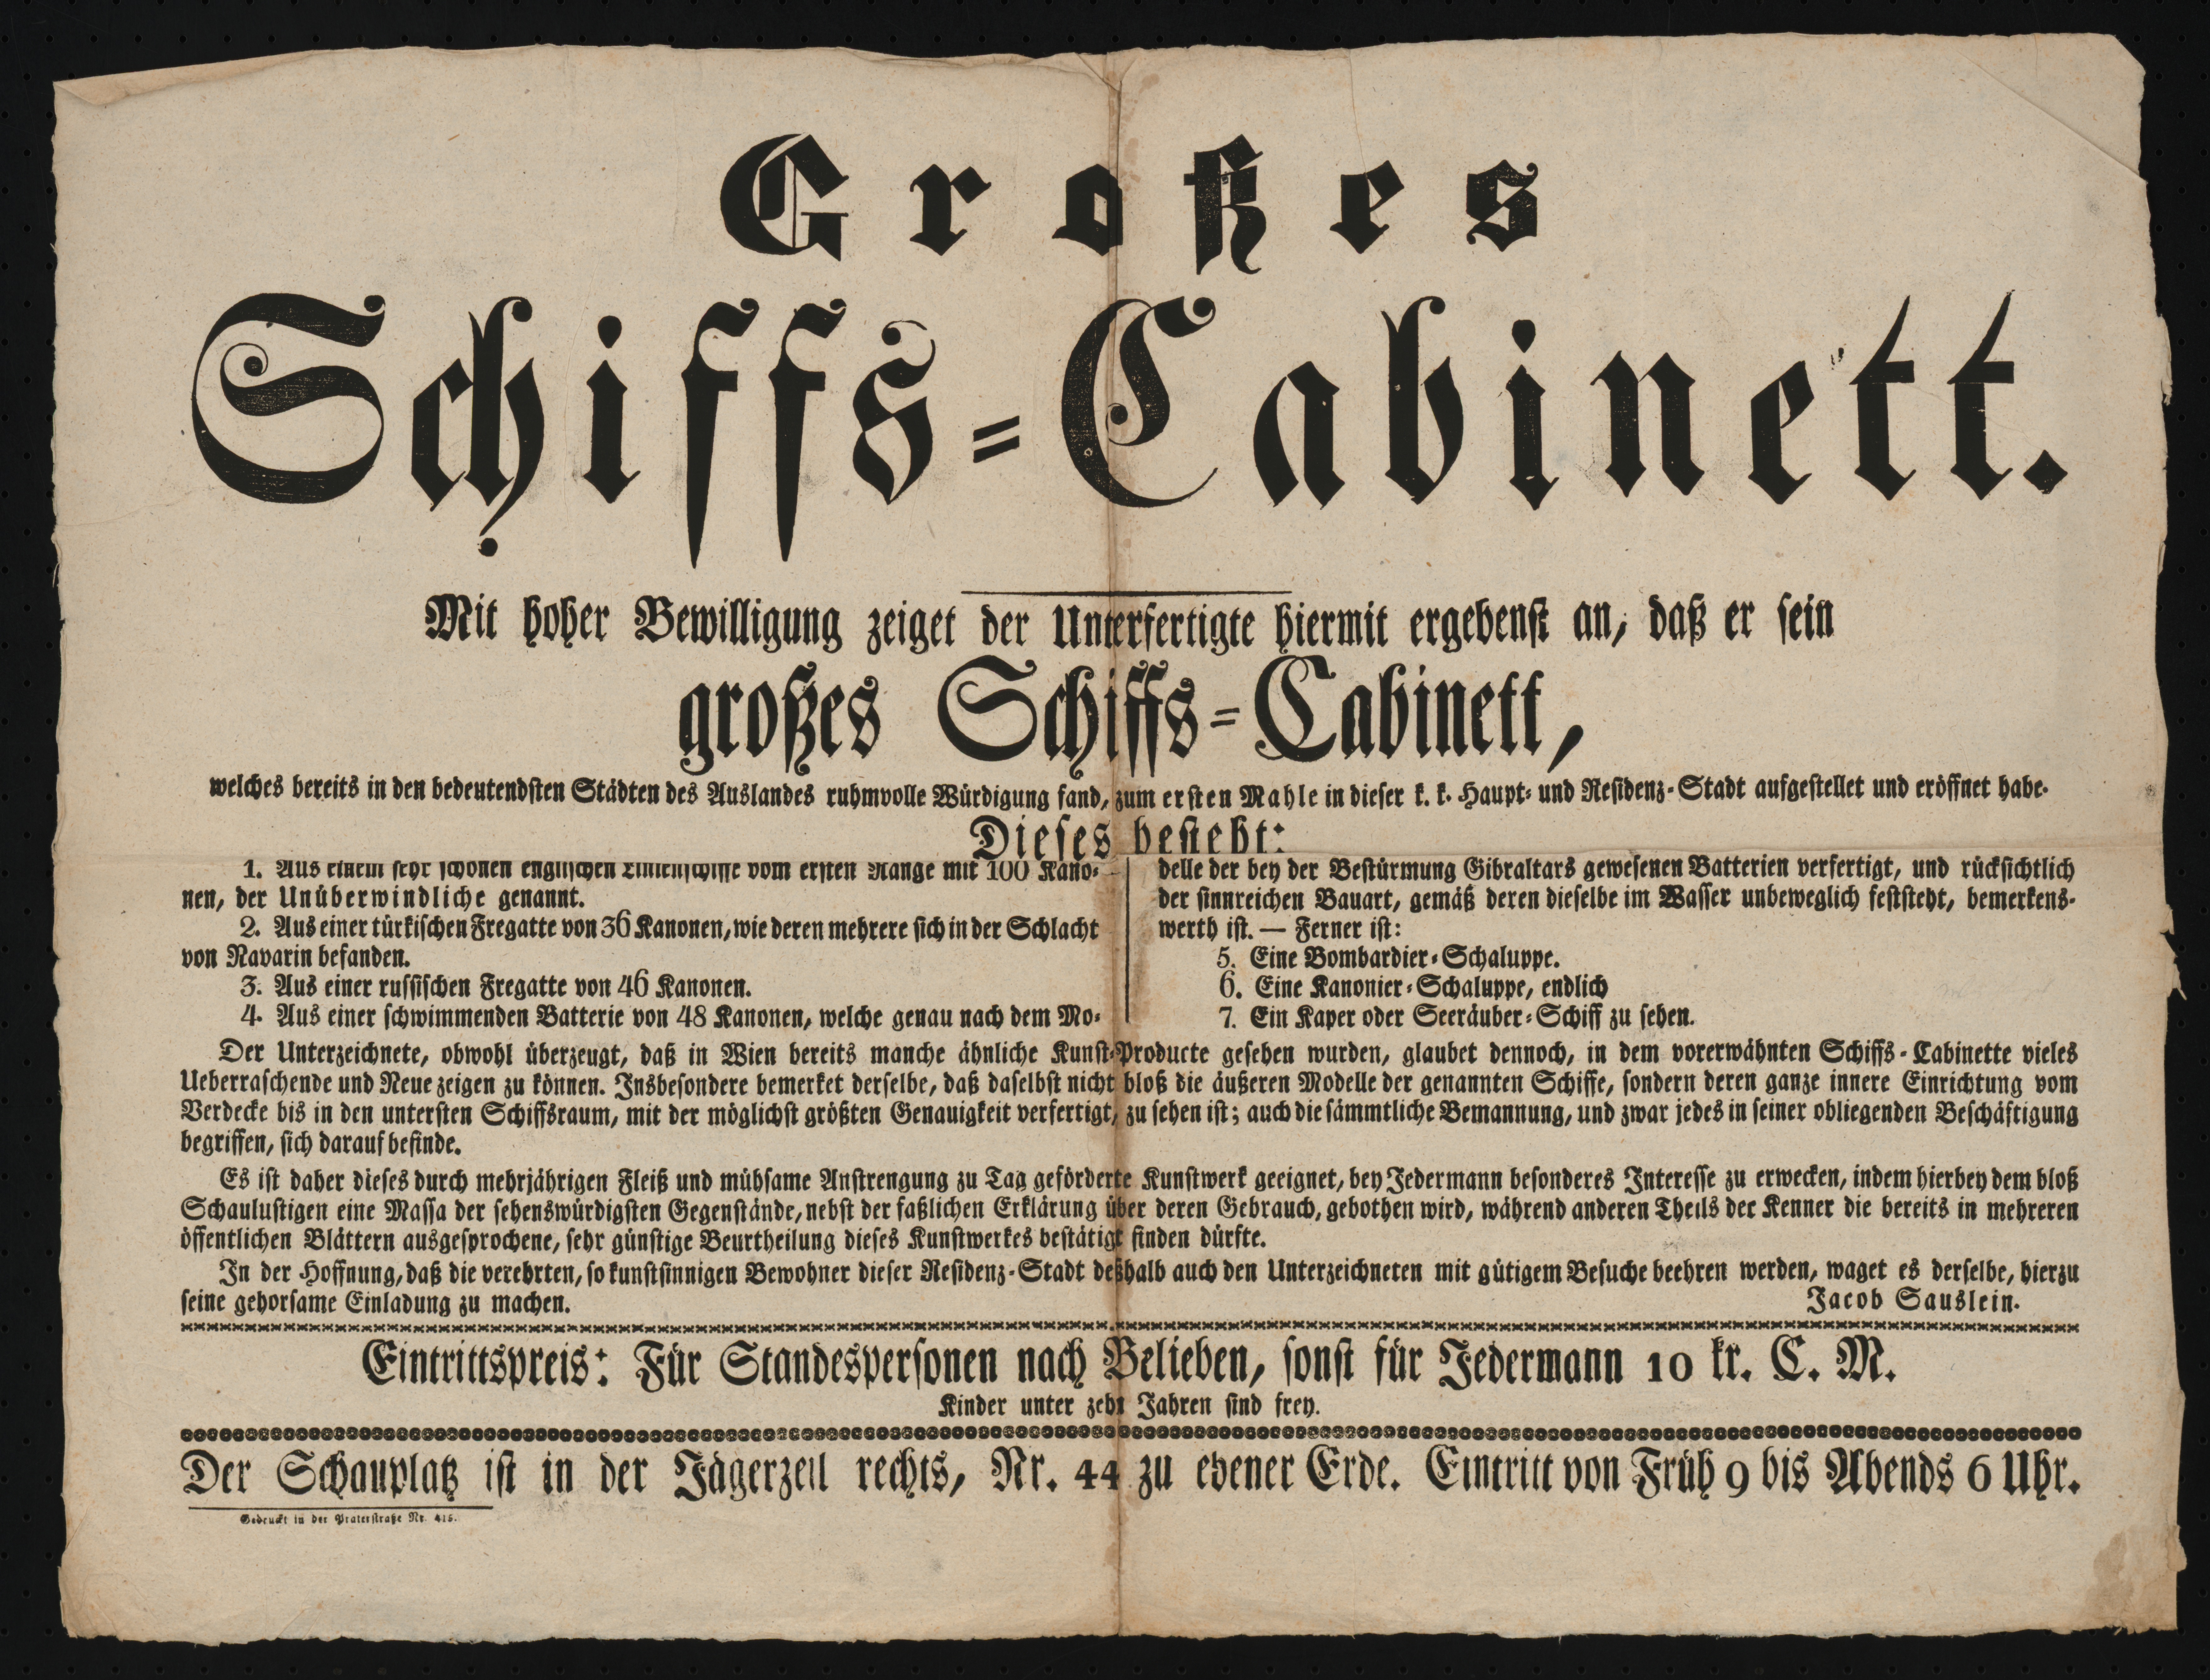 Großes
Schiffs-Cabinett.
Mit hoher Bewilligung zeiget der Unterfertigte hiermit ergebenst an, daß er sein
großes Schiffs-Cabinett,
welches bereits in den bedeutendsten Städten des Auslandes ruhmvolle Würdigung fand, zum ersten Mahle in dieser k. k. Haupt- und Residenz-Stadt aufgestellet und eröffnet habe.
Dieses besteht:
1. Aus einem sehr schönen englischen Linienschiffe vom ersten Range mit 100 Kano-
nen, der Unüberwindliche genannt.
2. Aus einer türkischen Fregatte von 36 Kanonen, wie deren mehrere sich in der Schlacht
von Navarin befanden.
3. Aus einer russischen Fregatte von 46 Kanonen.
4. Aus einer schwimmenden Batterie von 48 Kanonen, welche genau nach dem Mo-
delle der bey der Bestürmung Gibraltars gewesenen Batterien verfertigt, und rücksichtlich
der sinnreichen Bauart, gemäß deren dieselbe im Wasser unbeweglich feststeht, bemerkens-
werth ist. — Ferner ist:
5. Eine Bombardier-Schaluppe.
6. Eine Kanonier-Schaluppe, endlich
7. Ein Kaper oder Seeräuber-Schiff zu sehen.
Der Unterzeichnete, obwohl überzeugt, daß in Wien bereits manche ähnliche Kunst-Producte gesehen wurden, glaubet dennoch, in dem vorerwähnten Schiffs-Cabinette vieles
Ueberraschende und Neue zeigen zu können. Insbesondere bemerket derselbe, daß daselbst nicht bloß die äußeren Modelle der genannten Schiffe, sondern deren ganze innere Einrichtung vom
Verdecke bis in den untersten Schiffsraum, mit der möglichst größten Genauigkeit verfertigt, zu sehen ist; auch die sämmtliche Bemannung, und zwar jedes in seiner obliegenden Beschäftigung
begriffen, sich darauf befinde.
Es ist daher dieses durch mehrjährigen Fleiß und mühsame Anstrengung zu Tag geförderte Kunstwerk geeignet, bey Jedermann besonderes Interesse zu erwecken, indem hierbey dem bloß
Schaulustigen eine Massa der sehenswürdigsten Gegenstände, nebst der faßlichen Erklärung über deren Gebrauch, gebothen wird, während anderen Theils der Kenner die bereits in mehreren
öffentlichen Blättern ausgesprochene, sehr günstige Beurtheilung dieses Kunstwerkes bestätigt finden dürfte.
In der Hoffnung, daß die verehrten, so kunstsinnigen Bewohner dieser Residenz-Stadt deßhalb auch den Unterzeichneten mit gütigem Besuche beehren werden, waget es derselbe, hierzu
seine gehorsame Einladung zu machen.
Jacob Sauslein.
Eintrittspreis: Für Standespersonen nach Belieben, sonst für Jedermann 10 kr. C. M.
Kinder unter zehn Jahren sind frey.
Der Schauplatz ist in der Jägerzeil rechts, Nr. 44 zu ebener Erde. Eintritt von Früh 9 bis Abends 6 Uhr.
Gedruckt in der Praterstraße Nr. 415.